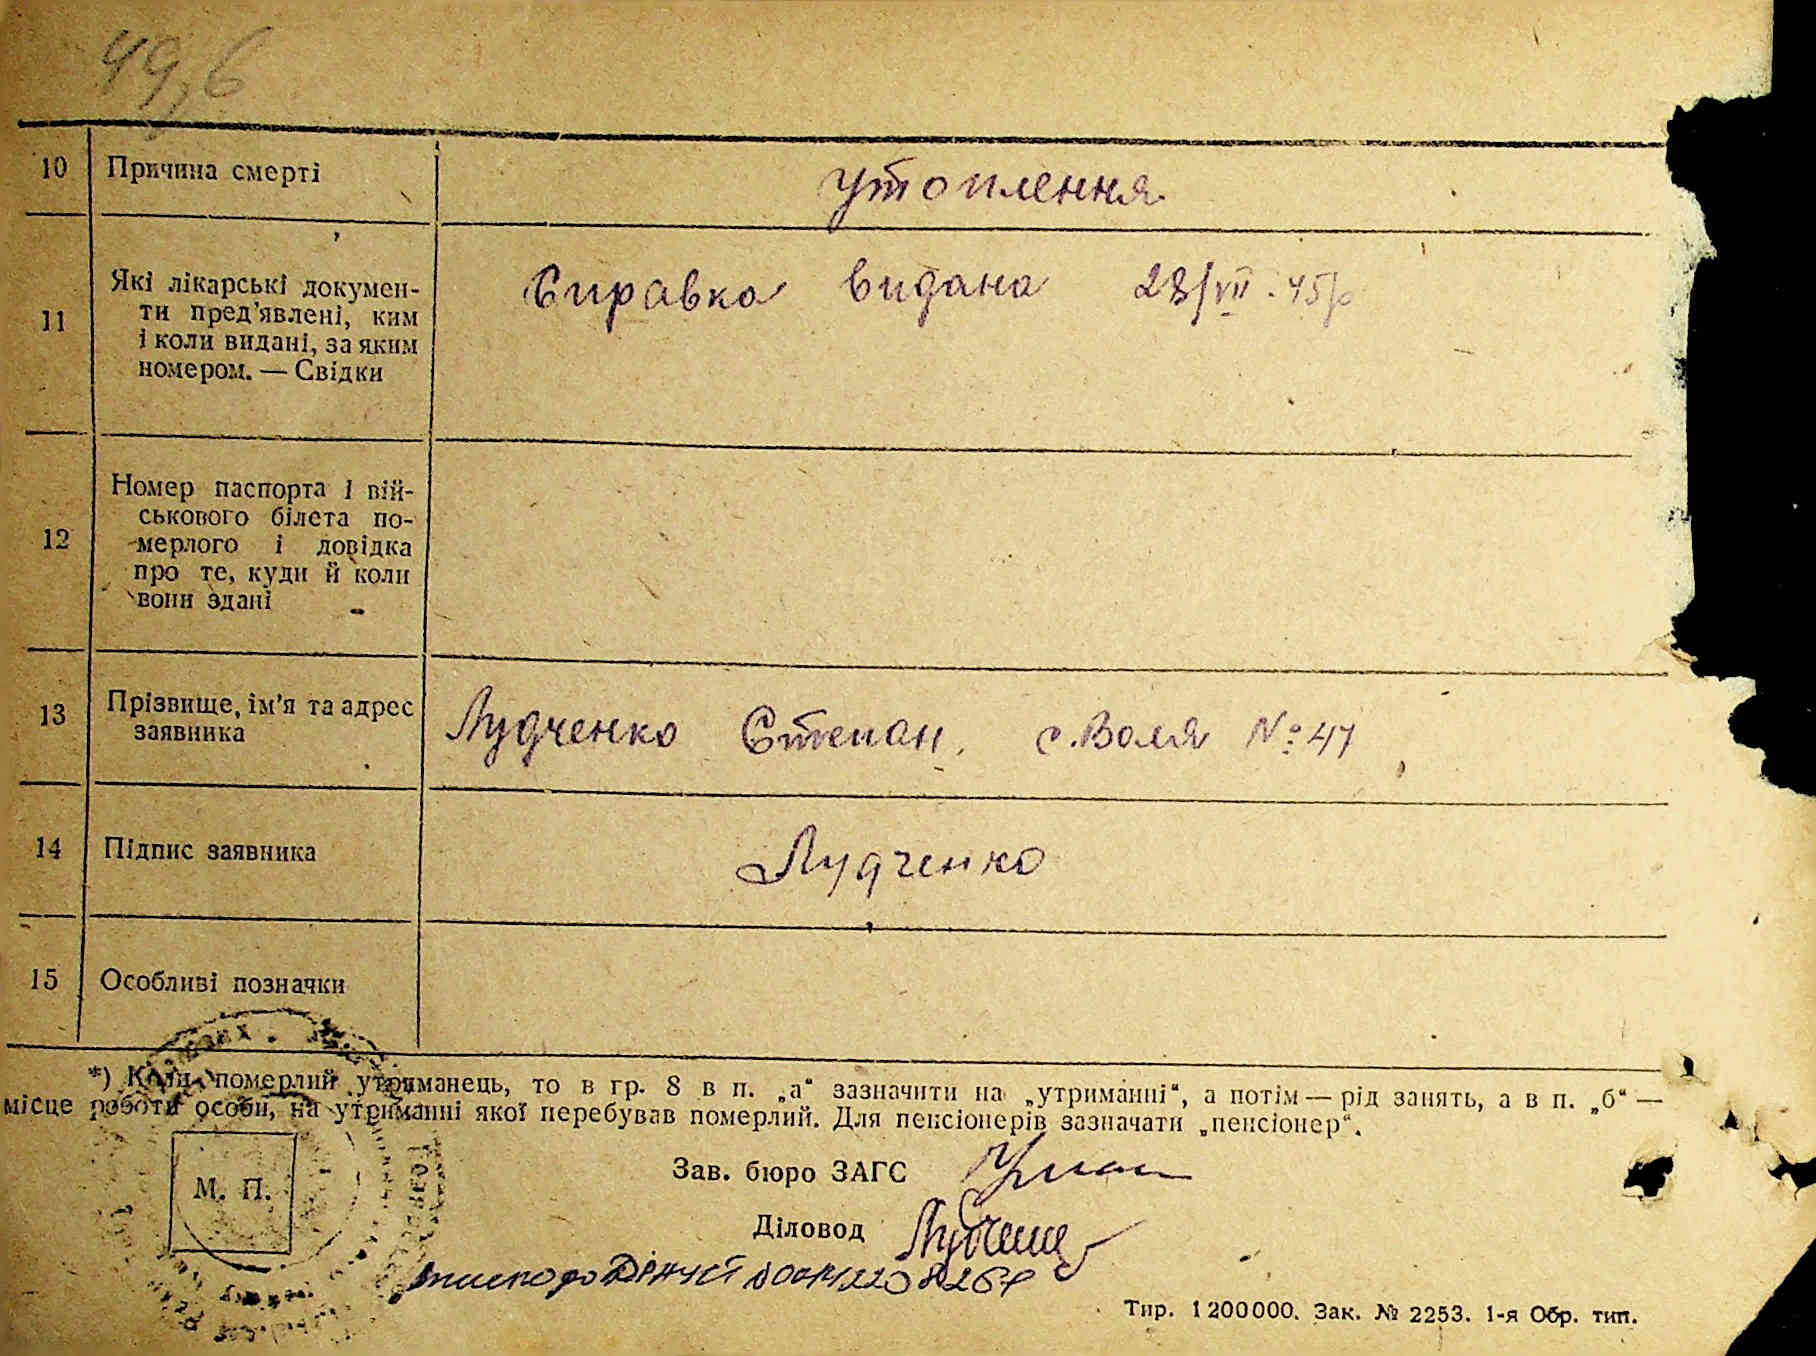 49,б
10 Причина смерті утоплення
11 Які лікарські докумен-
ти пред'явлені, ким
і коли видані, за яким
номером. — Свідки
Справка видана 28/VII-45р
12 Номер паспорта і вій-
ськового білета по-
мерлого і довідка
про те, куди й коли
вони здані
13 Прізвище, ім'я та адрес
заявника
Лудченко Степан. с. Воля № 47
14 Підпис заявника Лудченко
15 Особливі позначки
*) Коли померлий утриманець, то в гр. 8 в п. „а“ зазначити на „утриманні“, а потім — рід занять, а в п. „б“ —
місце роботи особи, на утриманні якої перебував померлий. Для пенсіонерів зазначати „пенсіонер“.
М. П.
Зав. бюро ЗАГС
Діловод
до ДРАЦСГ 00142208267
Тир. 1200000. Зак. № 2253. 1-я Обр. тип.